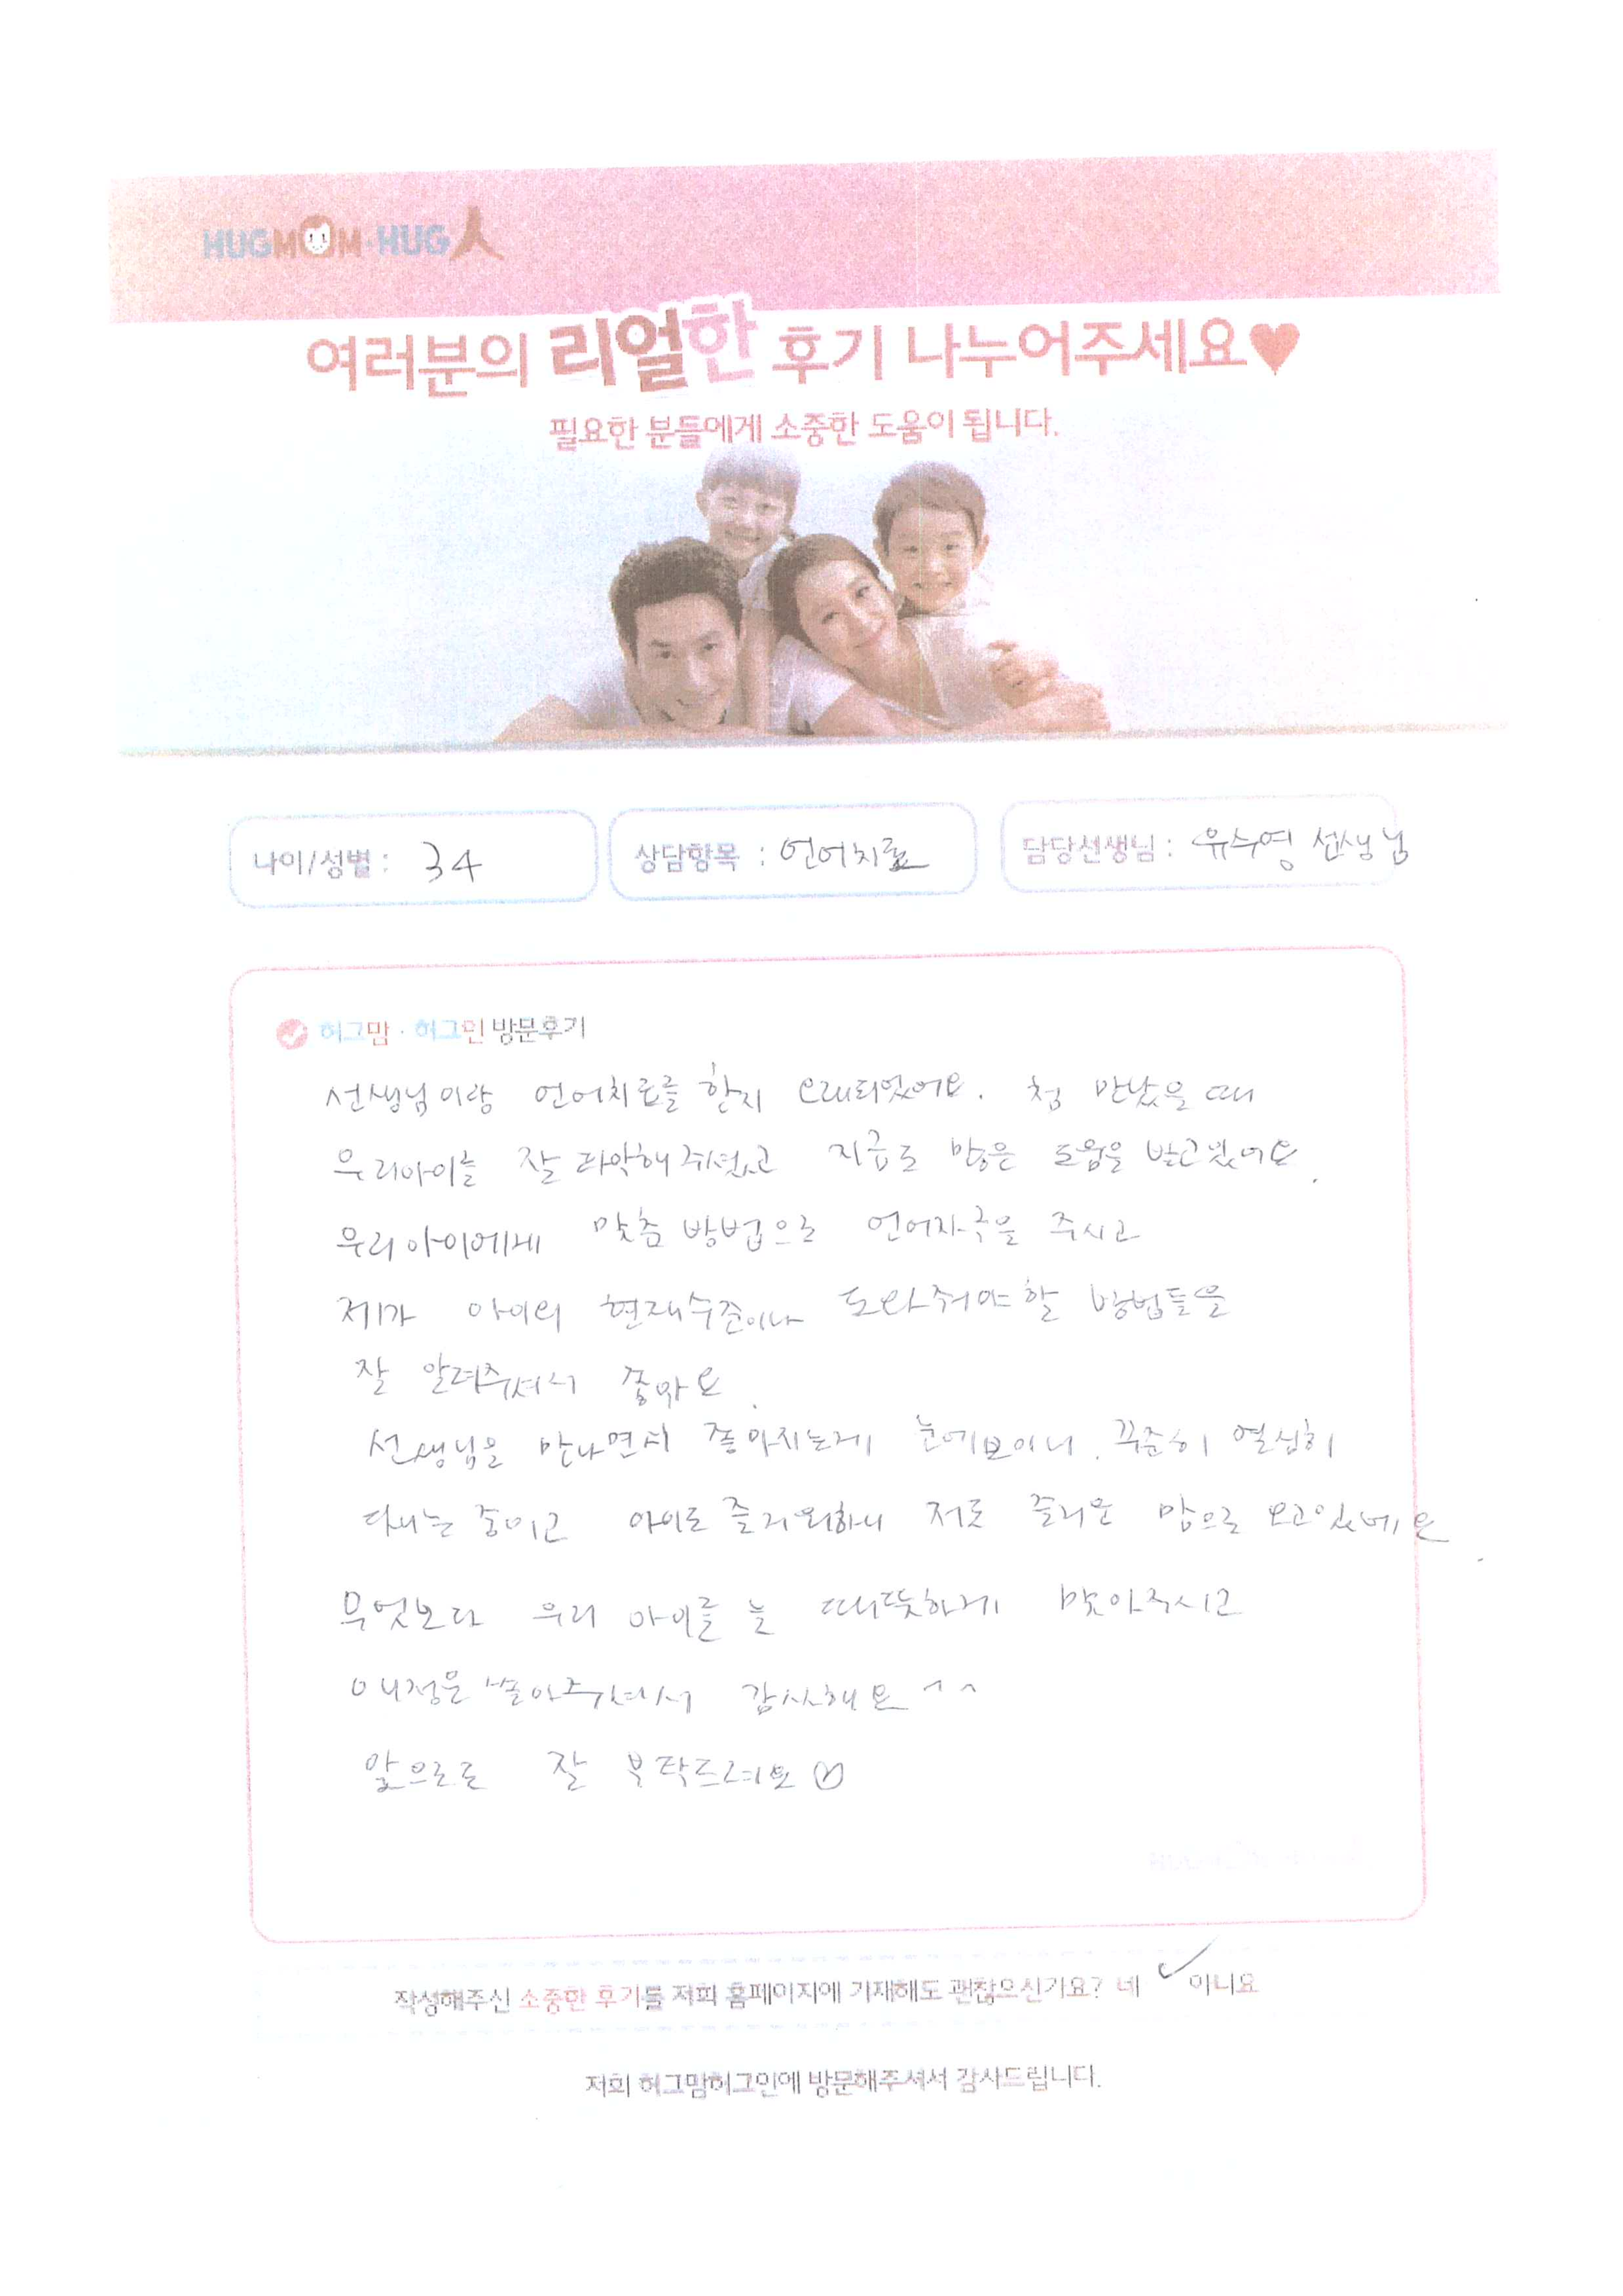 HUGMOM·HUG人
여러분의 리얼한 후기 나누어주세요♥
필요한 분들에게 소중한 도움이 됩니다.
나이/성별 : 34
상담항목 : 언어치료
담당선생님 : 유수영 선생님
허그맘·허그인 방문후기
선생님이랑 언어치료를 한지 오래되었어요. 첨 만났을 때
우리아이를 잘 파악해주셨고 지금도 많은 도움을 받고있어요.
우리아이에게 맞춤 방법으로 언어자극을 주시고
제가 아이의 현재수준이나 도와줘야할 방법들을
잘 알려주셔서 좋아요.
선생님을 만나면서 좋아지는게 눈에보이니. 꾸준히 열심히
다니는 중이고 아이도 즐거워하니 저도 즐거운 맘으로 오고있네요.
무엇보다 우리 아이를 늘 따뜻하게 맞아주시고
애정을 쏟아주셔서 감사해요 ^^
앞으로도 잘 부탁드려요♡
작성해주신 소중한 후기를 저희 홈페이지에 기재해도 괜찮으신가요? 네 ✓ 아니요
저희 허그맘허그인에 방문해주셔서 감사드립니다.